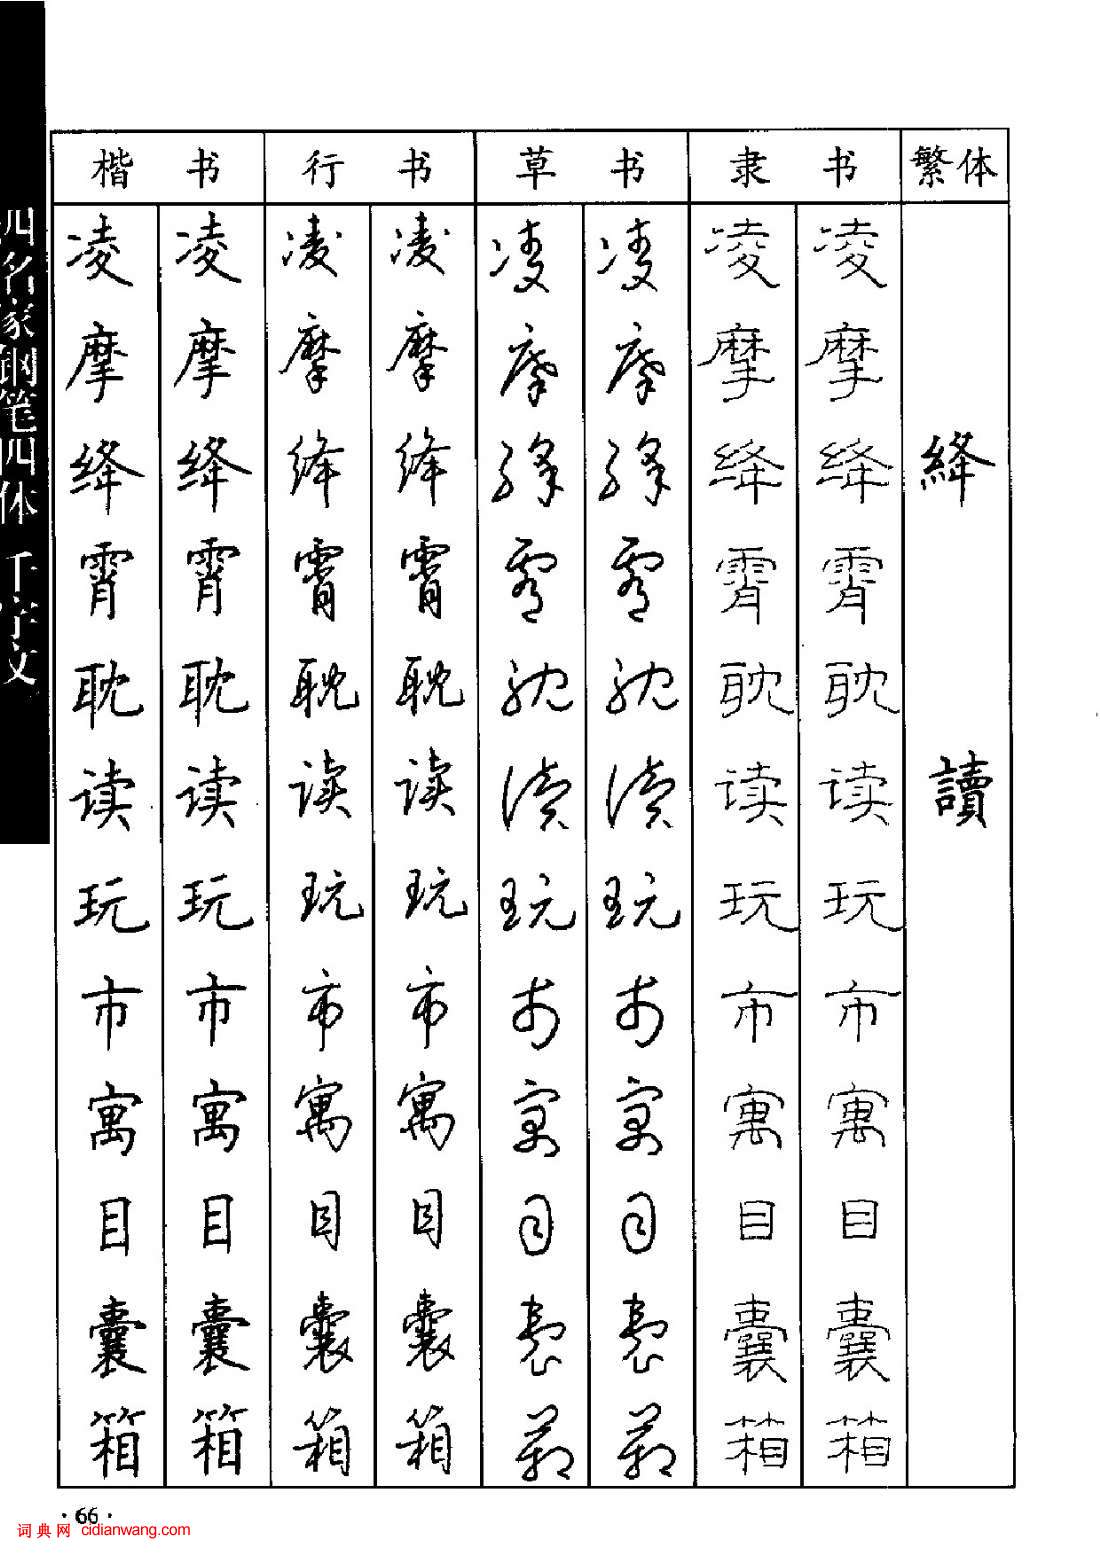 四名家钢笔四体 千字文
楷书 行书 草书 隶书 繁体
凌 凌 凌 凌 凌 凌 凌 凌
摩 摩 摩 摩 摩 摩 摩 摩
绛 绛 绛 绛 绛 绛 绛 绛 絳
霄 霄 霄 霄 霄 霄 霄 霄
耽 耽 耽 耽 耽 耽 耽 耽
读 读 读 读 读 读 读 读 讀
玩 玩 玩 玩 玩 玩 玩 玩
市 市 市 市 市 市 市 市
寓 寓 寓 寓 寓 寓 寓 寓
目 目 目 目 目 目 目 目
囊 囊 囊 囊 囊 囊 囊 囊
箱 箱 箱 箱 箱 箱 箱 箱
·66·
词典网 cidianwang.com